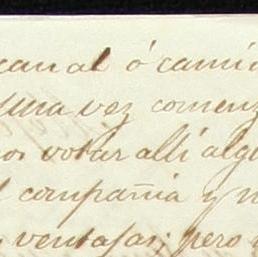 canal ó cami
una vez comenz
nos votar alli alg
compañia y n
ventajas; pero